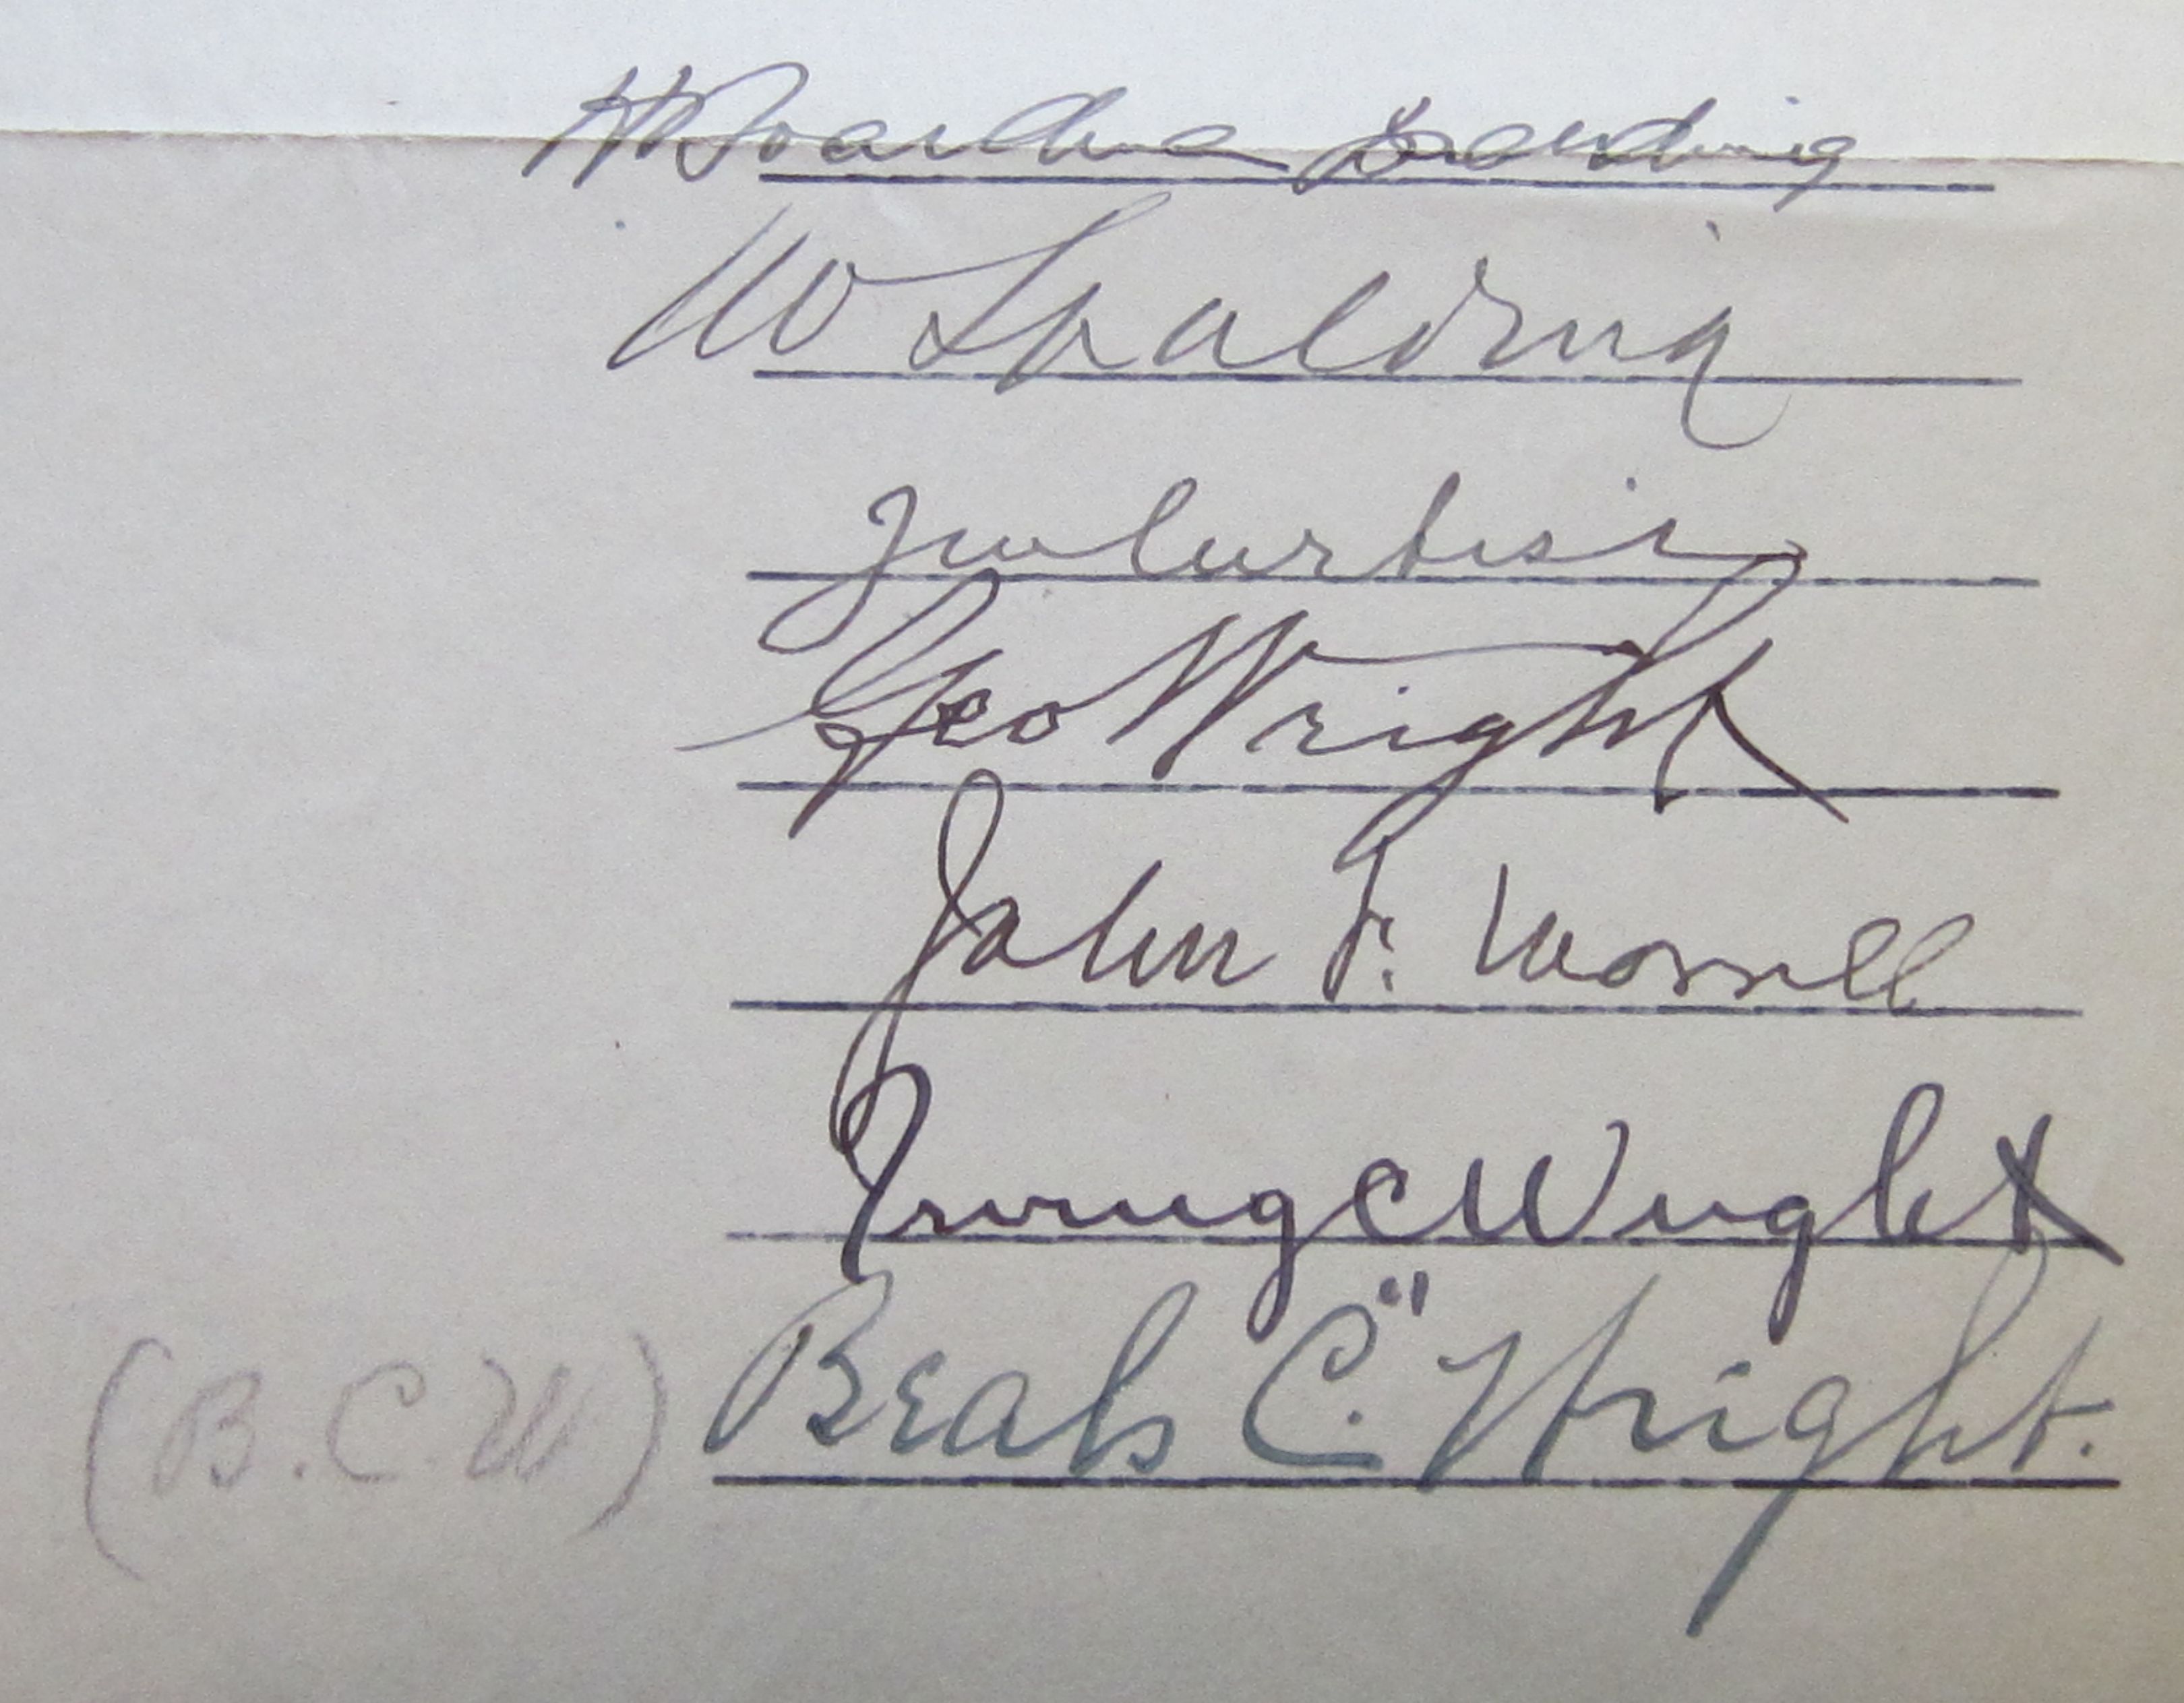 H Boardman Spalding
W Spalding
J W Curtiss
Geo Wright
John F. Morrill
Irving C Wright
(B.C.W) Beals C. Wright.